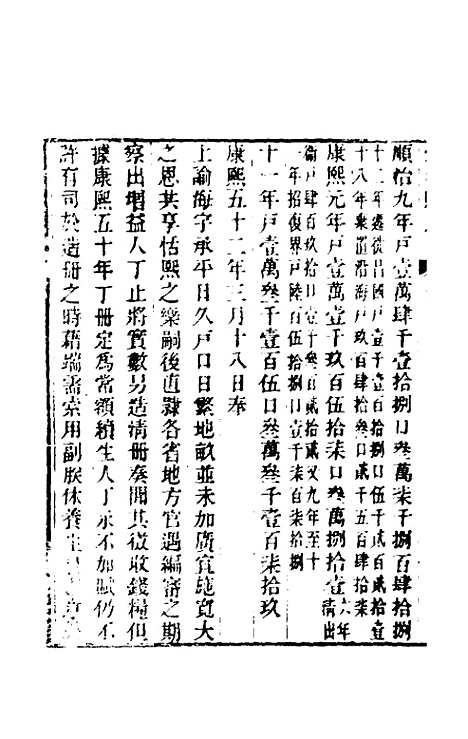 順治九年戸壹萬肆千壹拾捌口叁萬柒千捌百肆拾捌
十二年遷徙出國戸壹千壹百拾捌口伍千貳百貳拾壹
十八年棄置沿海戸玖百肆拾捌口貳千五百肆拾柒
康熙元年戸壹萬壹千玖百伍拾柒口叁萬捌拾壹
六年清出
衞戸肆百玖拾口壹千叁百貳拾貳又九年至十
一年招復界戸陸百伍拾捌口壹千柒百柒拾捌
十一年戸壹萬叁千壹百伍口叁萬叁千壹百柒拾玖
康熙五十二年三月十八日奉
上諭海宇承平日久戸口日繁地畝並未加廣宜施寬大
之恩共享恬熙之樂嗣後直隸各省地方官遇編審之期
察出增益人丁止將實數另造清冊奏聞其徵收錢糧但
據康熙五十年丁冊定為常額續生人丁永不加賦仍不
許有司於造冊之時藉端需索用副朕休養